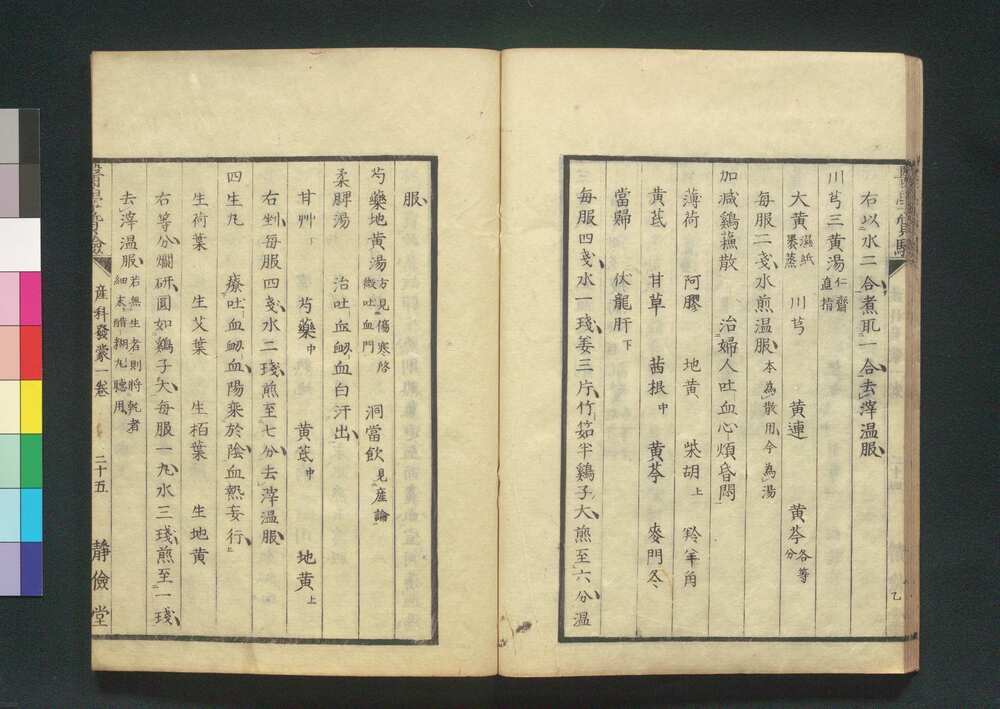 右以水二合煮取一合去滓温服
川芎三黄湯 仁齋直指
大黄 濕紙裹蒸 川芎 黄連 黄芩 各等分
每服二戔水煎温服 本為散用今為湯
加减鷄蘓散 治婦人吐血心煩昏悶
薄荷 阿膠 地黄 柴胡 上 羚羊角
黄芪 甘草 茜根 中 黄芩 麥門冬
當歸 伏龍肝 下
每服四戔水一琖姜三片竹茹半鷄子大煎至六分温
服
芍藥地黄湯 方見傷寒啓微吐血門 洞當飲 見産論
柔脾湯 治吐血衂血白汗出
甘艸 下 芍藥 中 黄芪 中 地黄 上
右剉每服四戔水二琖煎至七分去滓温服
四生丸 療吐血衂血陽乘於陰血熱妄行 上
生荷葉 生艾葉 生栢葉 生地黄
右等分爛研圓如鷄子大每服一丸水三琖煎至一琖
去滓温服 若無生者則將乾者細末醋糊丸聽用
産科發蒙一卷 二十五 靜儉堂